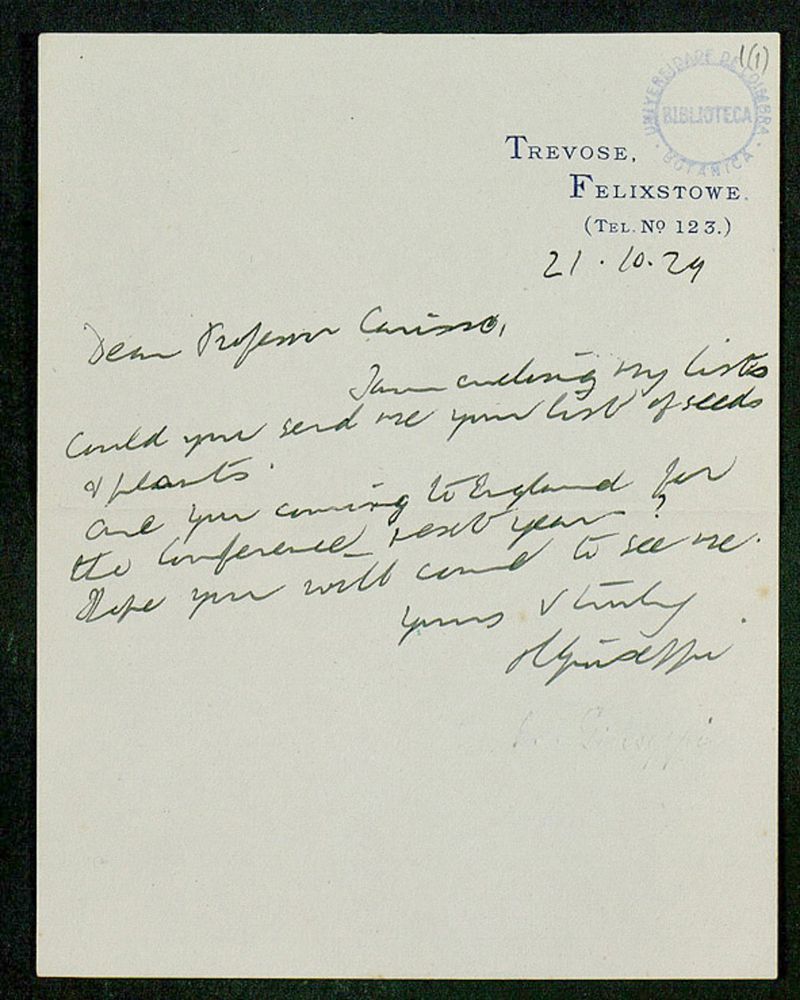 1(1)
UNIVERSIDADE DE COIMBRA
BIBLIOTECA
BOTANICA
TREVOSE,
FELIXSTOWE.
(TEL. Nº 123.)
21.10.29
Dear Professor Carisso,
I am making my lists
Could you send me your list of seeds
& plants.
Are you coming to England for
the Conference next year?
Hope you will come to see me.
Yours v truly
Giuseppi
Giuseppi